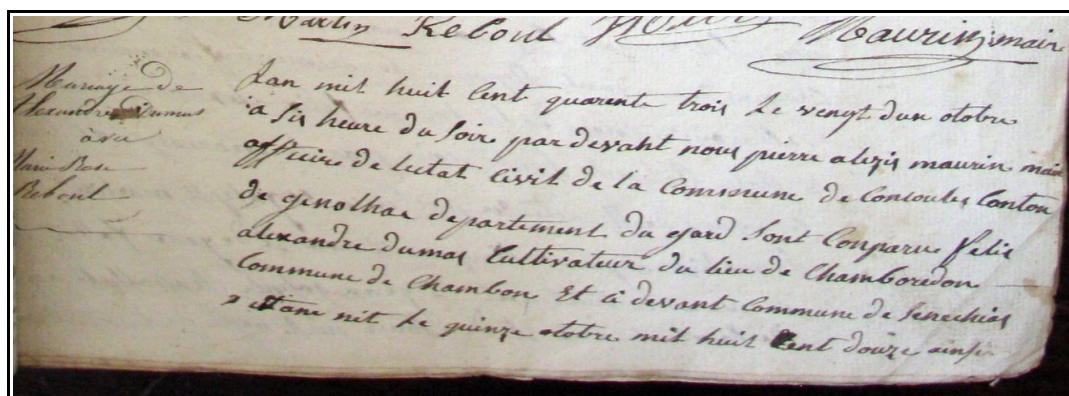 Martin Reboul Maurin, mair
Mariage de
Alexandre Dumas
avec
Marie Rose
Reboul
Lan mil huit Cent quarente trois Le vengt dun otobre
a Sis heure du Soir par devant nous pierre alezis maurin mair
officire de letat Civil de la Commune de Concoules Canton
de genolhac departement du gard Sont Conparu felis
alexandre dumas Cultivateur du lieu de Chamboredon
Commune de Chambon Et Ci devant Commune de Senechas
et ane nit Le quinze otobre mil huit Cent douze ainsi